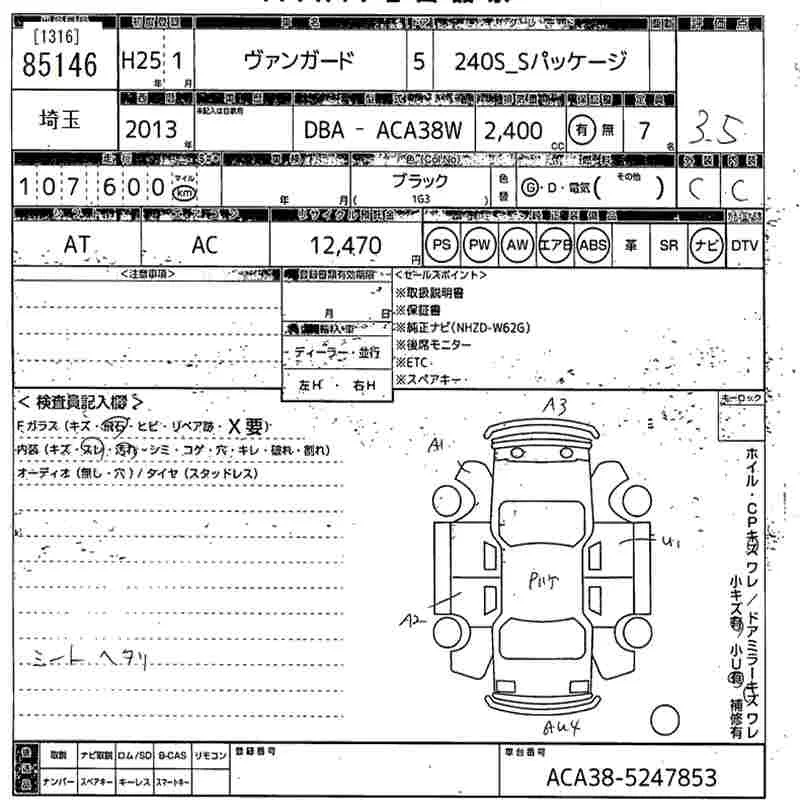 [1316]
85146
H25 1
年 月
ヴァンガード
5
240S_Sパッケージ
埼玉
2013
年
未記入は自家用
DBA - ACA38W
2,400
CC
有 無
7
名
3.5
107600
マイル
km
年 月
ブラック
( 1G3 )
色替
G・D・電気( その他 )
C C
AT
AC
12,470
円
PS PW AW エアB ABS 革 SR ナビ DTV
<注意事項>
登録書類有効期限
月 日
ディーラー・並行
左H ・ 右H
<セールスポイント>
※取扱説明書
※保証書
※純正ナビ(NHZD-W62G)
※後席モニター
※ETC
※スペアキー
<検査員記入欄>
Fガラス (キズ・飛石・ヒビ・リペア跡・X要)
内装 (キズ・スレ・汚れ・シミ・コゲ・穴・キレ・破れ・割れ)
オーディオ (無し・穴) / タイヤ (スタッドレス)
シート ヘタリ
キーロック
A3
A1
U1
A2
AU4
ホイル・CPキズ ワレ / ドアミラーキズ ワレ
小キズ有 小U有 補修有
取説 ナビ取説 ロム/SD B-CAS リモコン
ナンバー スペアキー キーレス スマートキー
登録番号
車台番号
ACA38-5247853